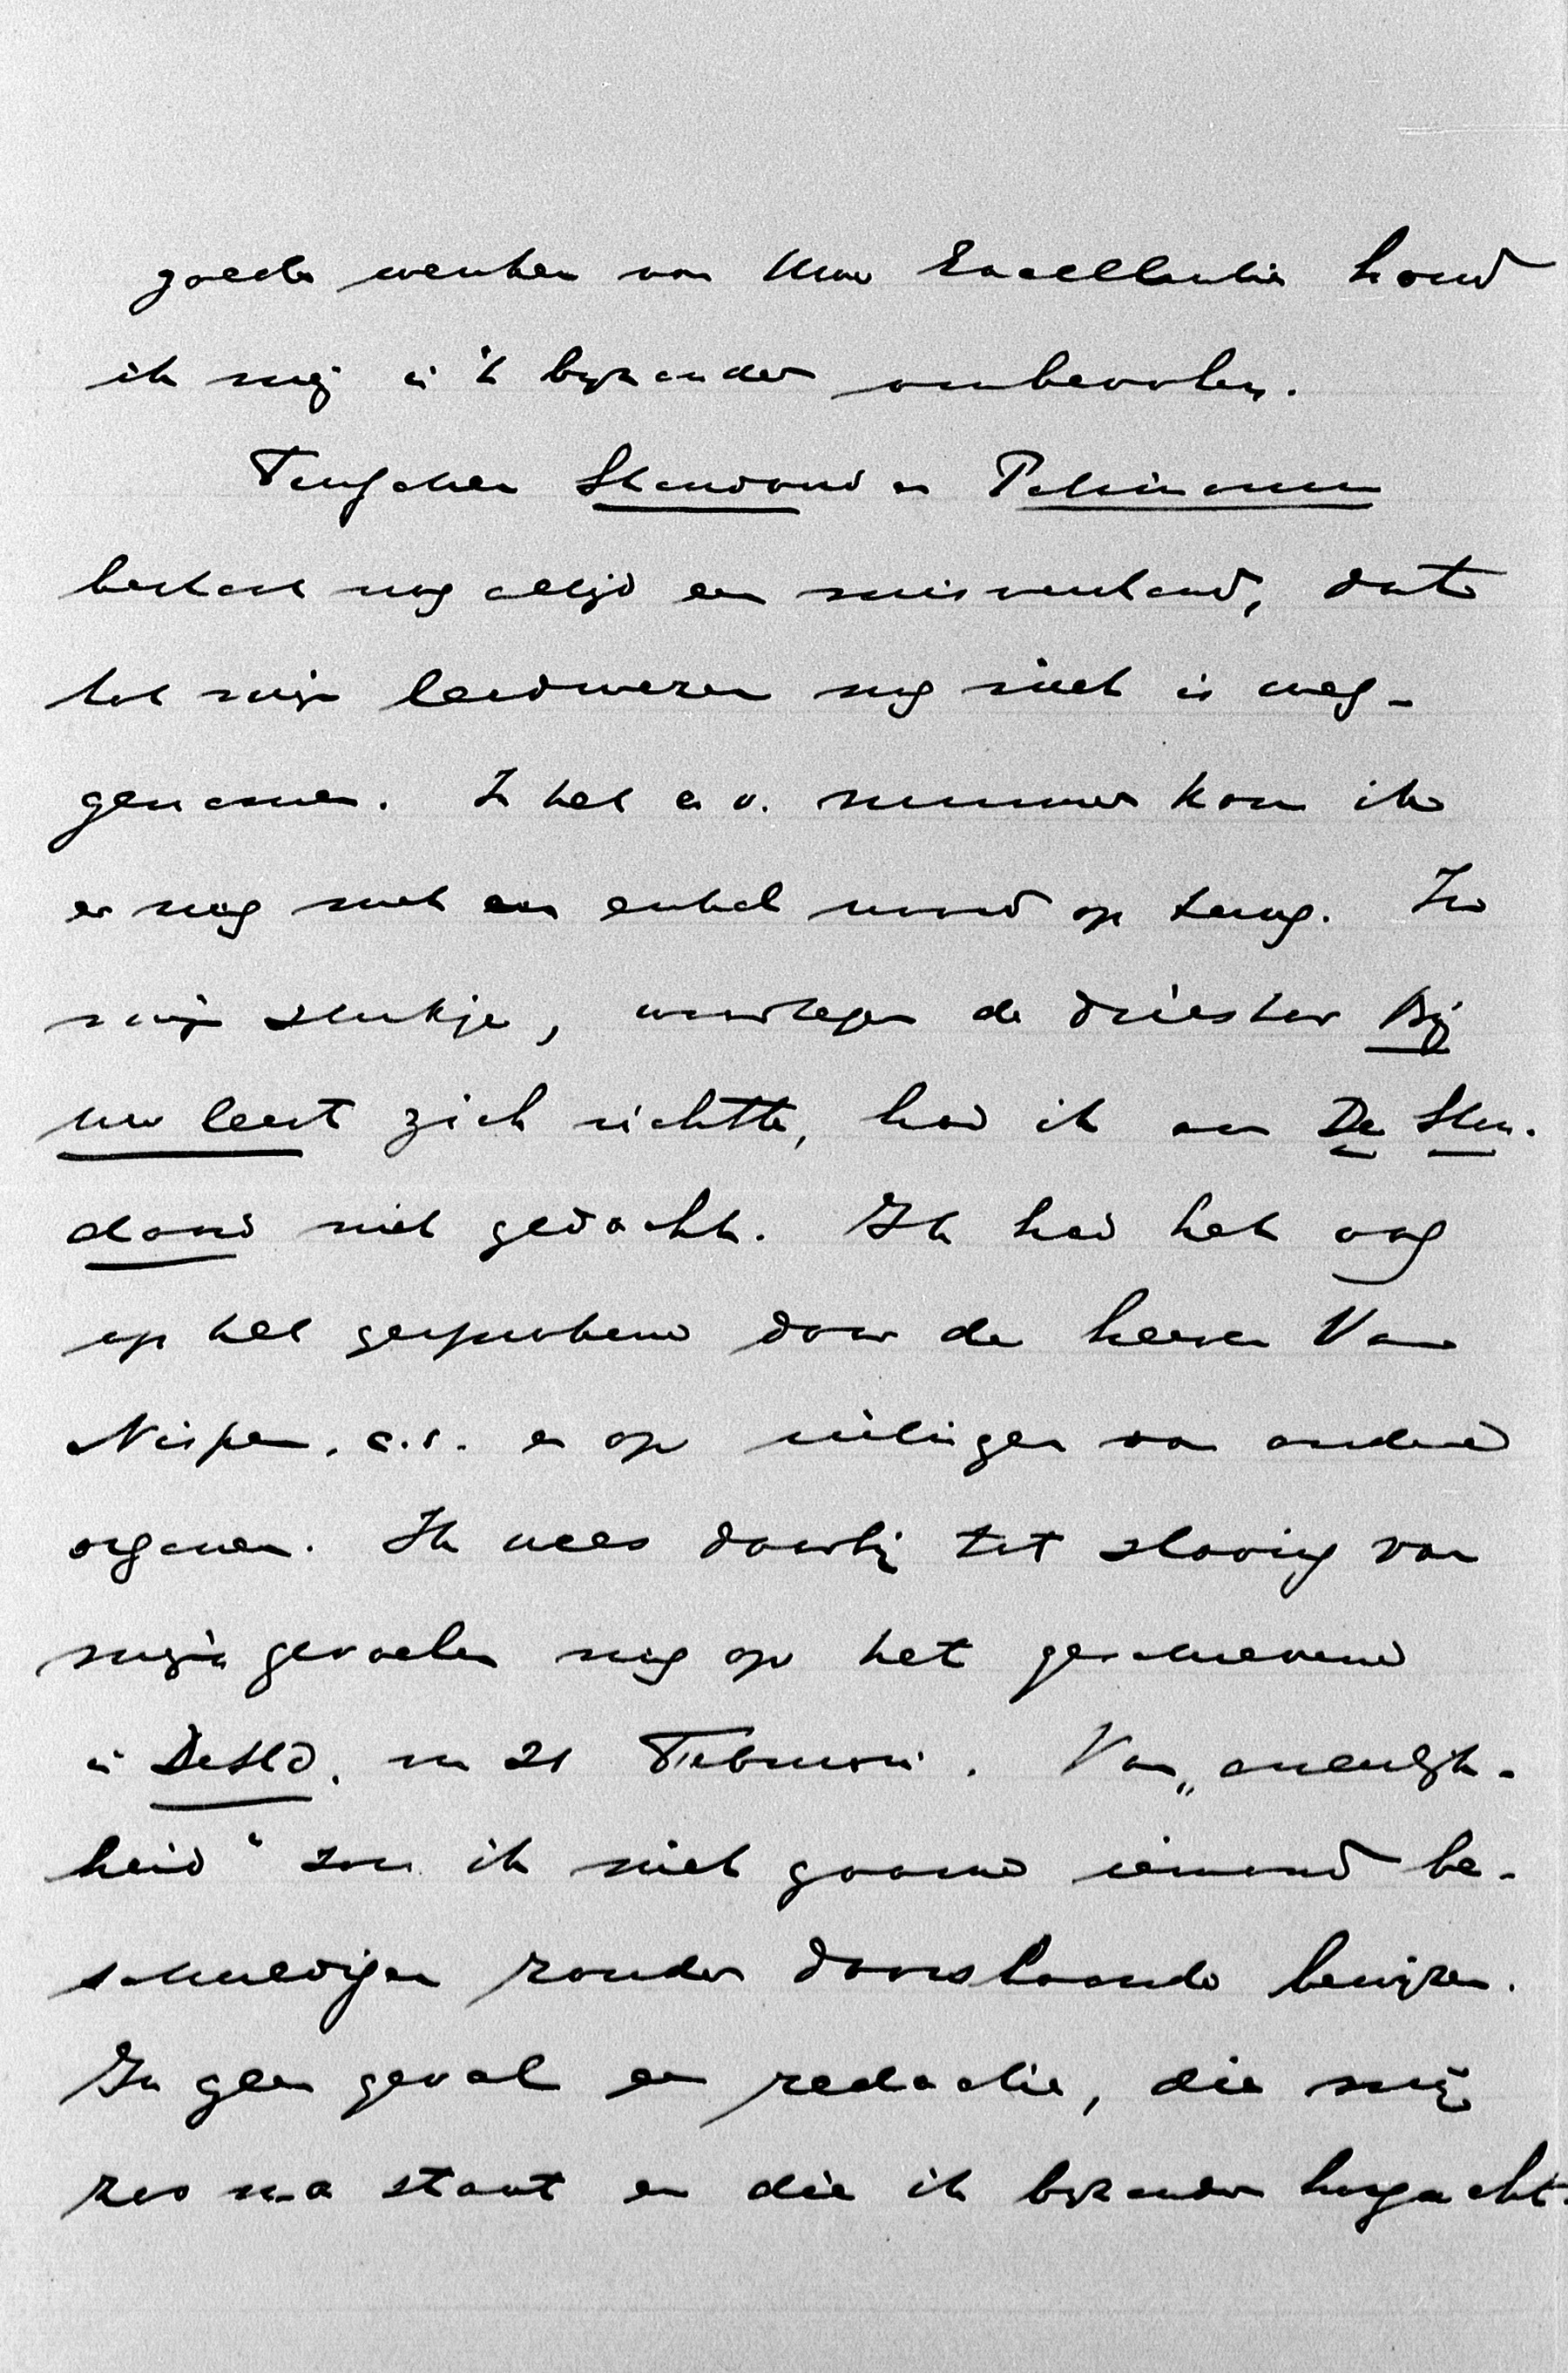 goede wenken van Uwe Excellentie houd
ik mij in 't byzonder aanbevolen.
Tusschen Standaard en Patrimonium
bestaat nog altijd een misverstand, dat
tot mijn leedwezen nog niet is weg-
genomen. In het e.v. nummer kom ik
er nog met een enkel woord op terug. In
mijn stukje, waartegen de driestar Bij
uw leest zich richtte, had ik aan De Stan-
daard niet gedacht. Ik had het oog
op het gesprokene door de heeren Van
Nispen c.s. en op uitingen van andere
organen. Ik wees daarbij tot staving van
mijn gevoelen nog op het geschrevene
in De Std. van 21 Februari. Van „oneerlijk-
heid" zou ik niet gaarne iemand be-
schuldigen zonder doorslaande bewijzen.
In geen geval een redactie, die mij
zoo na staat en die ik byzonder hoogacht.